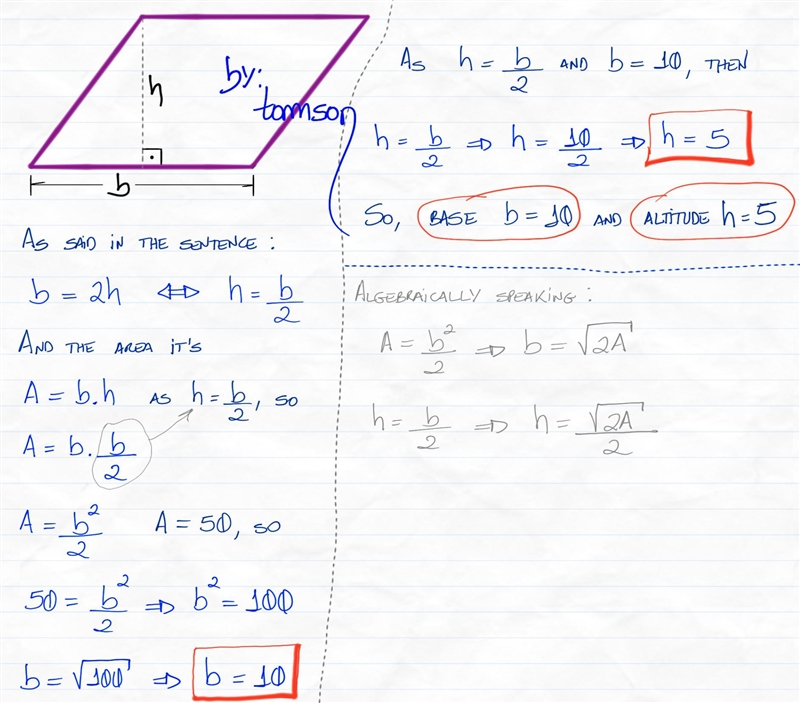 h
by:
tomson
b
As said in the sentence:
b = 2h ⇔ h = b/2
And the area it's
A = b.h as h = b/2, so
A = b. b/2
A = b²/2 A = 50, so
50 = b²/2 ⇒ b² = 100
b = √100 ⇒ b = 10
As h = b/2 and b = 10, then
h = b/2 ⇒ h = 10/2 ⇒ h = 5
So, base b = 10 and altitude h = 5
Algebraically speaking:
A = b²/2 ⇒ b = √2A
h = b/2 ⇒ h = √2A/2